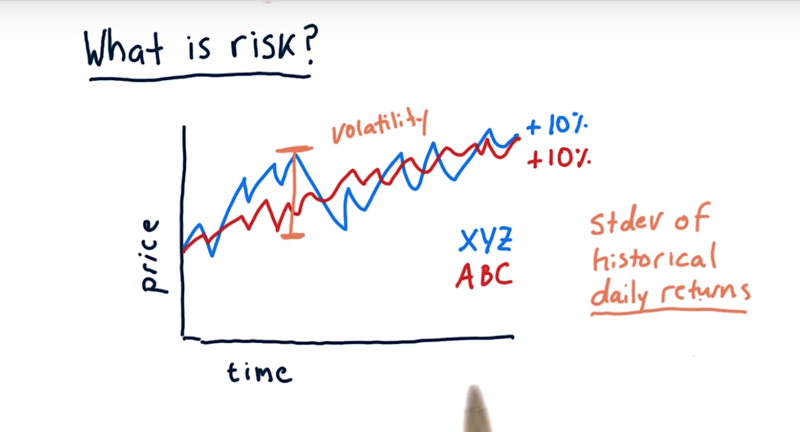 What is risk?
volatility
+10%
+10%
price
XYZ
ABC
Stdev of
historical
daily returns
time